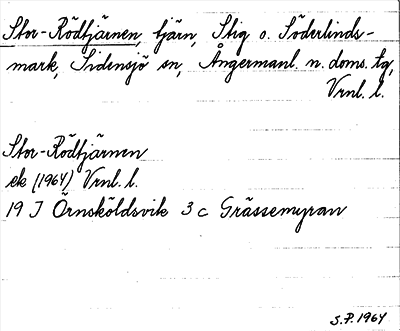 Stor-Rödtjärnen, tjärn, Stig o. Söderlinds-
mark, Sidensjö sn, Ångermanl. n. doms. tg,
Vrnl. l.
Stor-Rödtjärnen
ek (1964) Vrnl. l.
19 J Örnsköldsvik 3 c Grässemyran
S.P. 1964